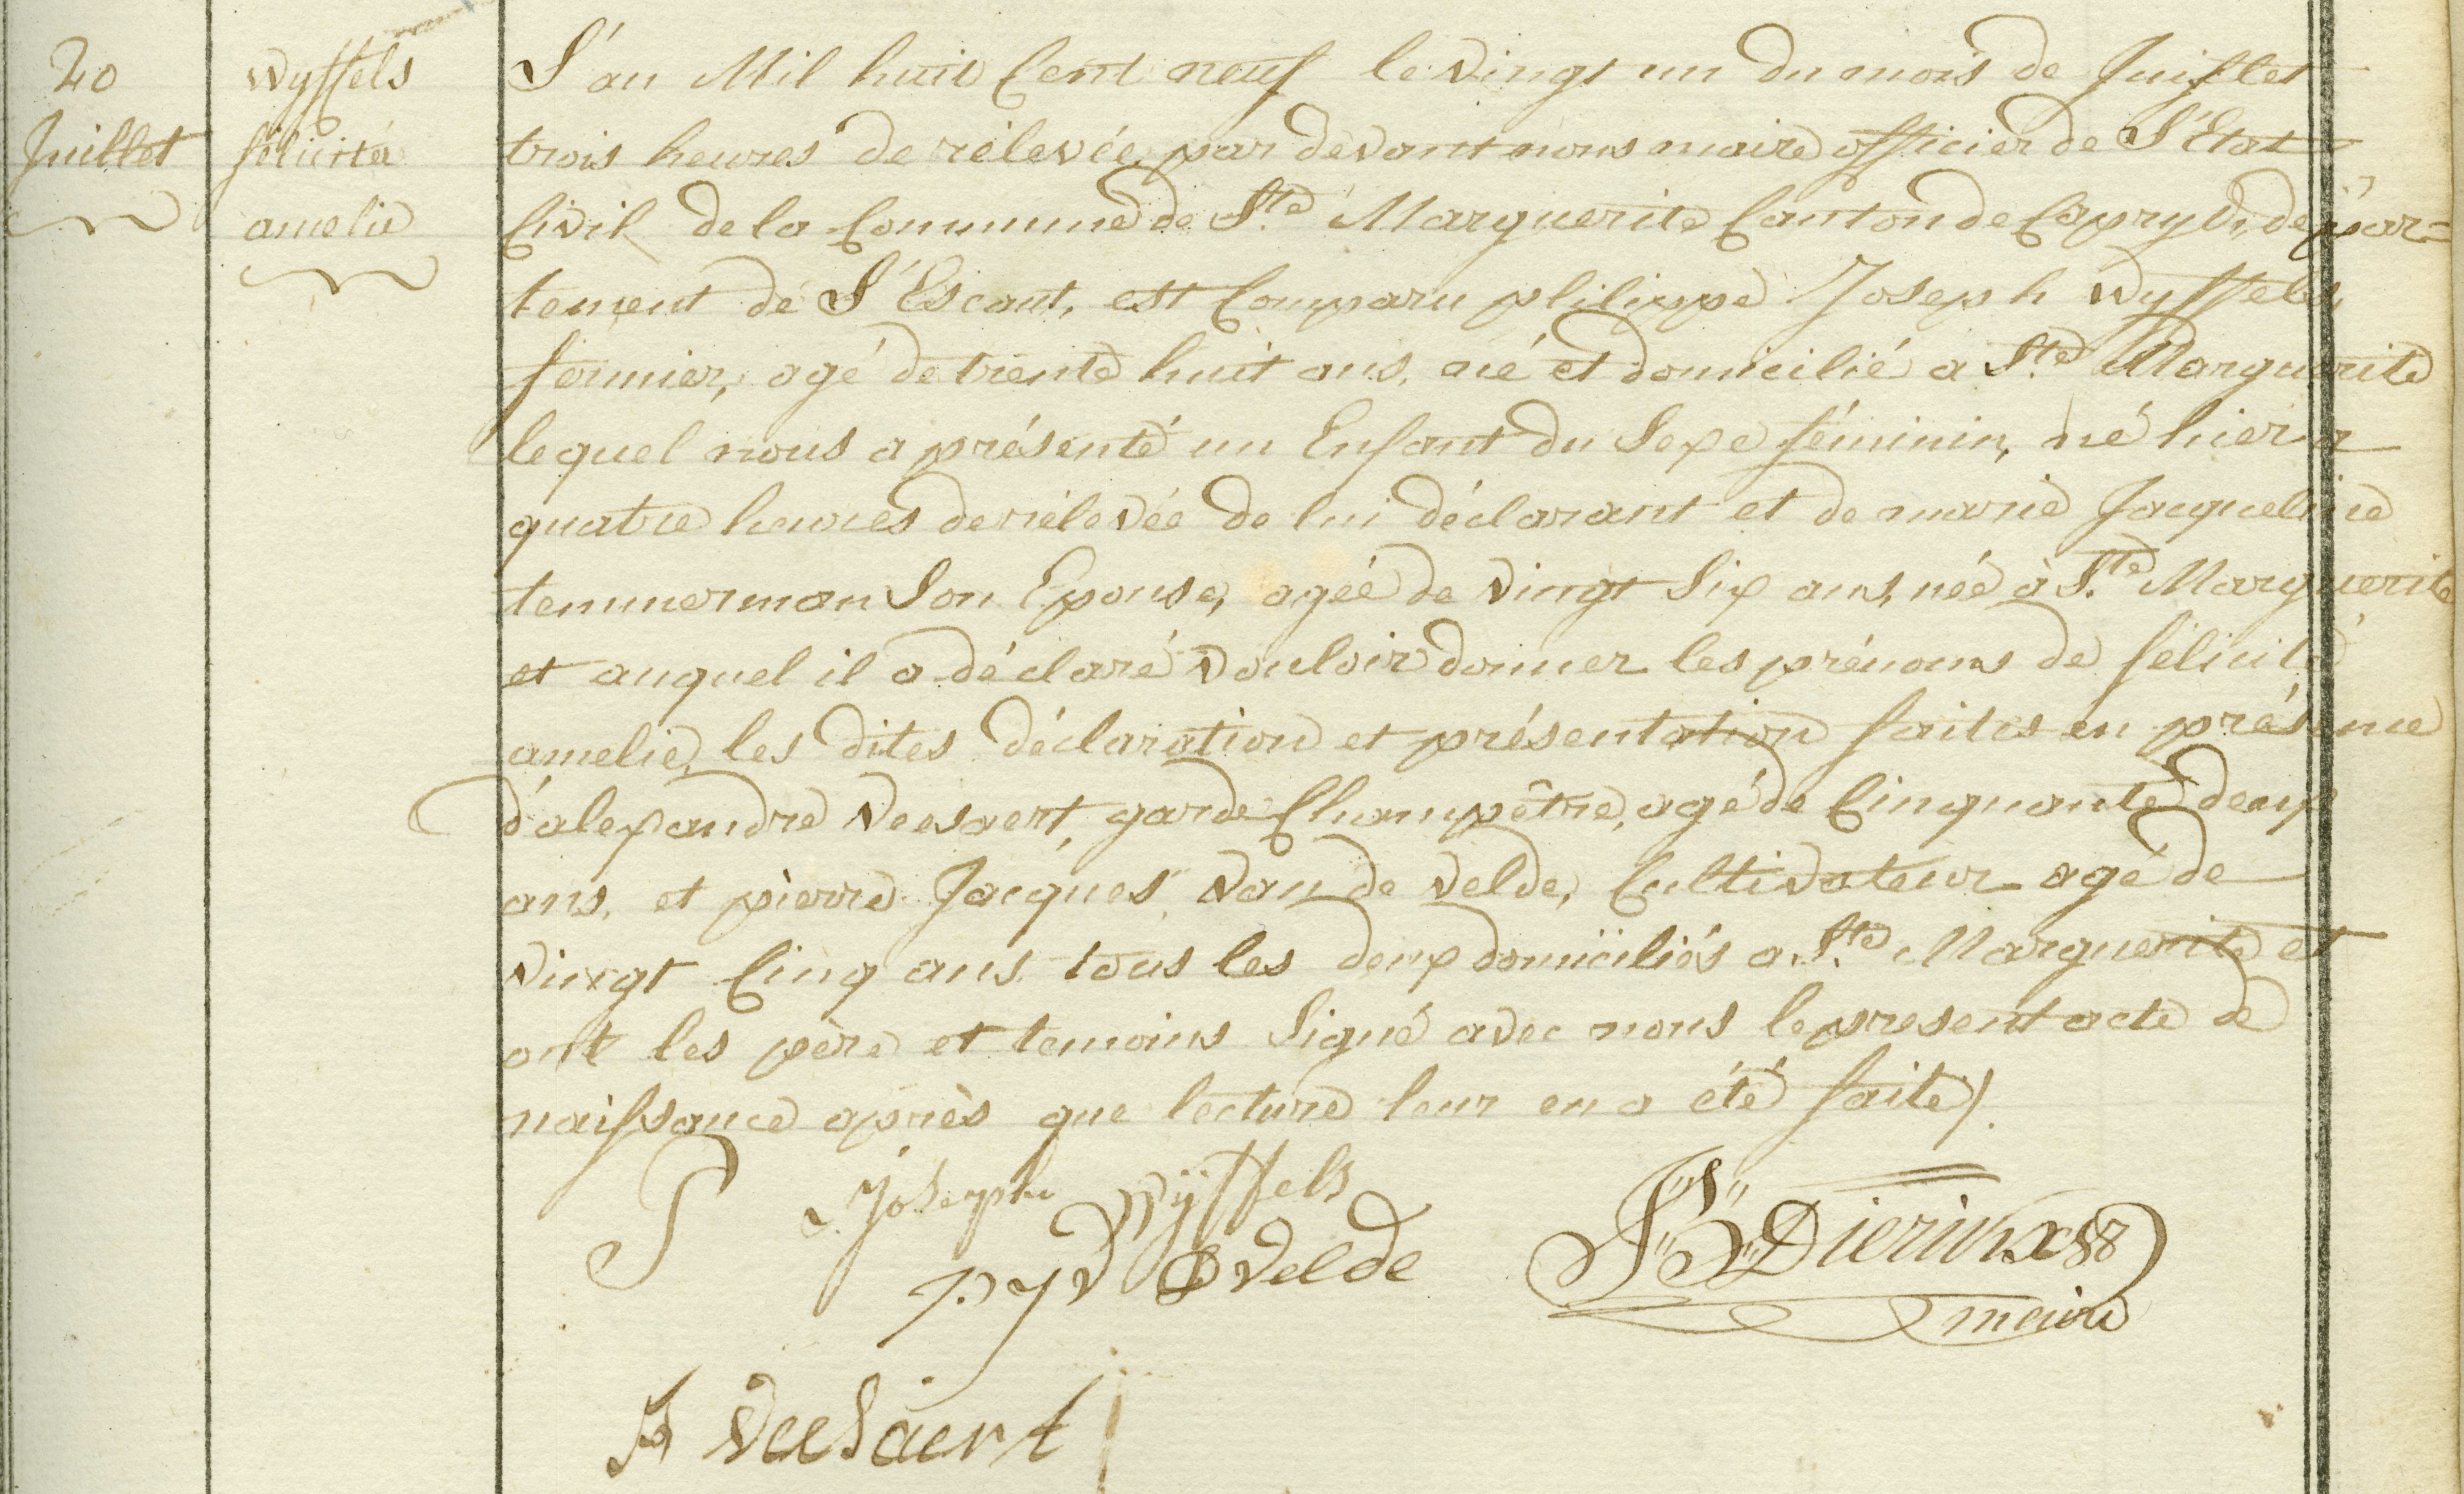 20
Juillet
Wyffels
félicité
amelie
L'an Mil huit Cent neuf le vingt un du mois de Juillet
trois heures de rélevée par devant nous maire officier de L'Etat
Civil de la Commune de Ste Marguerite Canton de Capryck, dépar=
tement de L'Escaut, est Comparu philippe Joseph Wyffels,
fermier, agé de trente huit ans, né et domicilié a Ste Marguerite
lequel nous a présenté un Enfant du Sexe féminin, né hier a
quatre heures de rélevée de lui déclarant et de marie Jacqueline
temmerman Son Epouse, agée de vingt Six ans, née à Ste Marguerite
et auquel il a déclaré vouloir donner les prénoms de félicité
amelie, les dites déclaration et présentation faites en présence
d'alexandre Veesaert, garde Champêtre, agé de Cinquante deux
ans, et pierre Jacques Van de Velde, Cultivateur agé de
vingt Cinq ans tous les deux domiciliés a Ste Marguerite et
ont les père et temoins Signé avec nous le present acte de
naissance après que lecture leur en a été faite/.
P Joseph Wÿffels
p j v D velde
JB Dierickx
maire
A VeeSaert